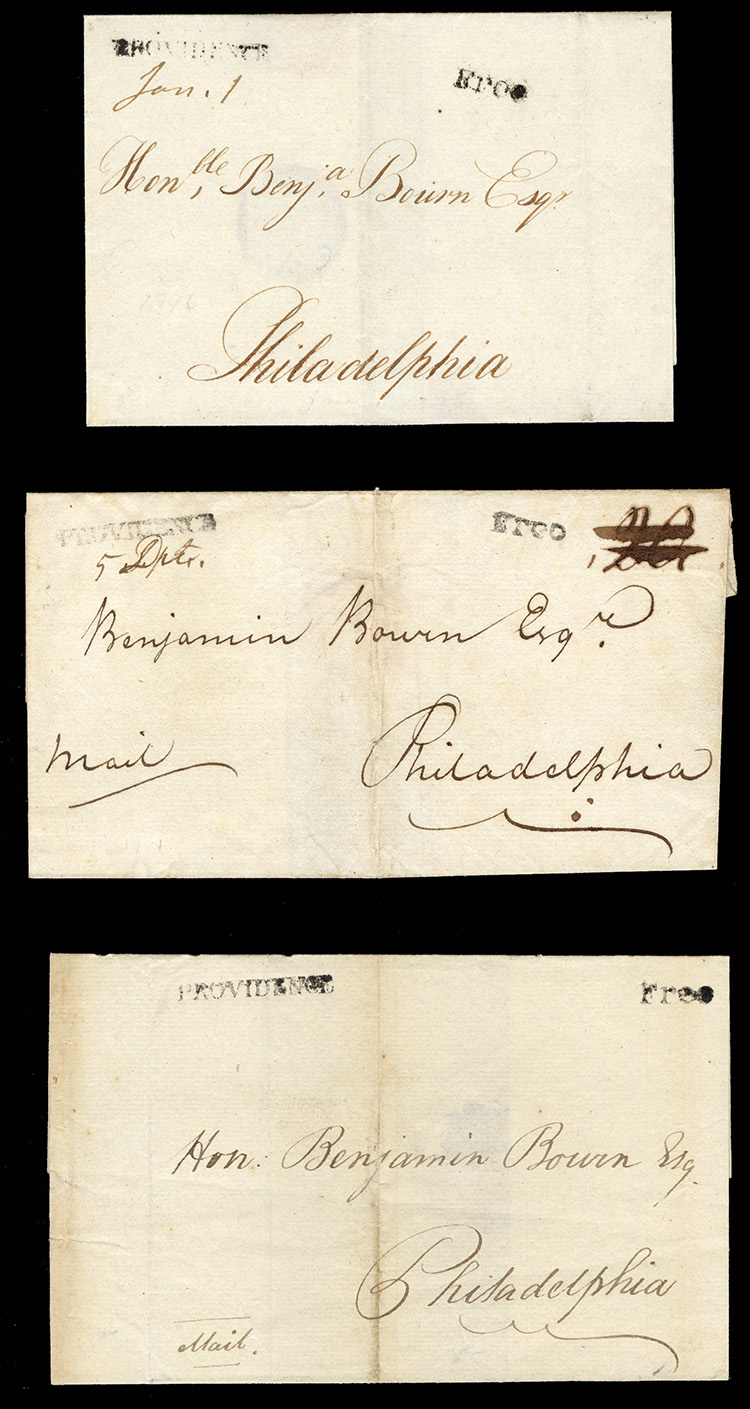 PROVIDENCE
Free
Jan. 1
Hon.ble Benj.a Bourn Esqr
Philadelphia
PROVIDENCE
Free
5 Dpts.
Benjamin Bourn Esqr.
Mail
Philadelphia
PROVIDENCE
Free
Hon: Benjamin Bourn Esq.
Philadelphia
Mail.